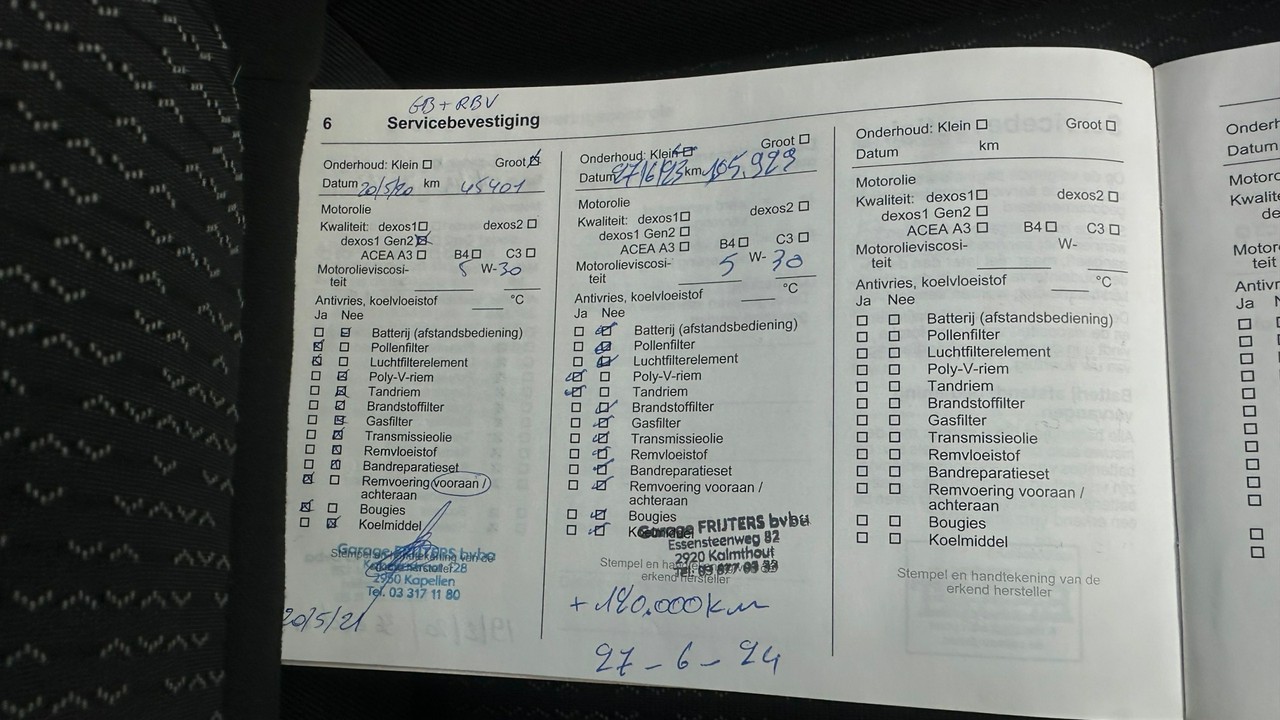 GB + RBV
6 Servicebevestiging
Onderhoud: Klein Groot
Datum 20/5/20 km 45401
Motorolie
Kwaliteit: dexos1 dexos2
dexos1 Gen2
ACEA A3 B4 C3
Motorolieviscosi-
teit 5 W-30
Antivries, koelvloeistof °C
Ja Nee
Batterij (afstandsbediening)
Pollenfilter
Luchtfilterelement
Poly-V-riem
Tandriem
Brandstoffilter
Gasfilter
Transmissieolie
Remvloeistof
Bandreparatieset
Remvoering vooraan /
achteraan
Bougies
Koelmiddel
Garage FRIJTERS bvba
2950 Kapellen
Tel. 03 317 11 80
20/5/21
Onderhoud: Klein Groot
Datum 27/6/23 km 105.923
Motorolie
Kwaliteit: dexos1 dexos2
dexos1 Gen2
ACEA A3 B4 C3
Motorolieviscosi-
teit 5 W- 30
Antivries, koelvloeistof °C
Ja Nee
Batterij (afstandsbediening)
Pollenfilter
Luchtfilterelement
Poly-V-riem
Tandriem
Brandstoffilter
Gasfilter
Transmissieolie
Remvloeistof
Bandreparatieset
Remvoering vooraan /
achteraan
Bougies
Garage FRIJTERS bvba
Essensteenweg 82
2920 Kalmthout
Stempel en
erkend hersteller
+ 120.000 km
27 - 6 - 24
Onderhoud: Klein Groot
Datum km
Motorolie
Kwaliteit: dexos1 dexos2
dexos1 Gen2
ACEA A3 B4 C3
Motorolieviscosi- W-
teit
Antivries, koelvloeistof °C
Ja Nee
Batterij (afstandsbediening)
Pollenfilter
Luchtfilterelement
Poly-V-riem
Tandriem
Brandstoffilter
Gasfilter
Transmissieolie
Remvloeistof
Bandreparatieset
Remvoering vooraan /
achteraan
Bougies
Koelmiddel
Stempel en handtekening van de
erkend hersteller
Ja